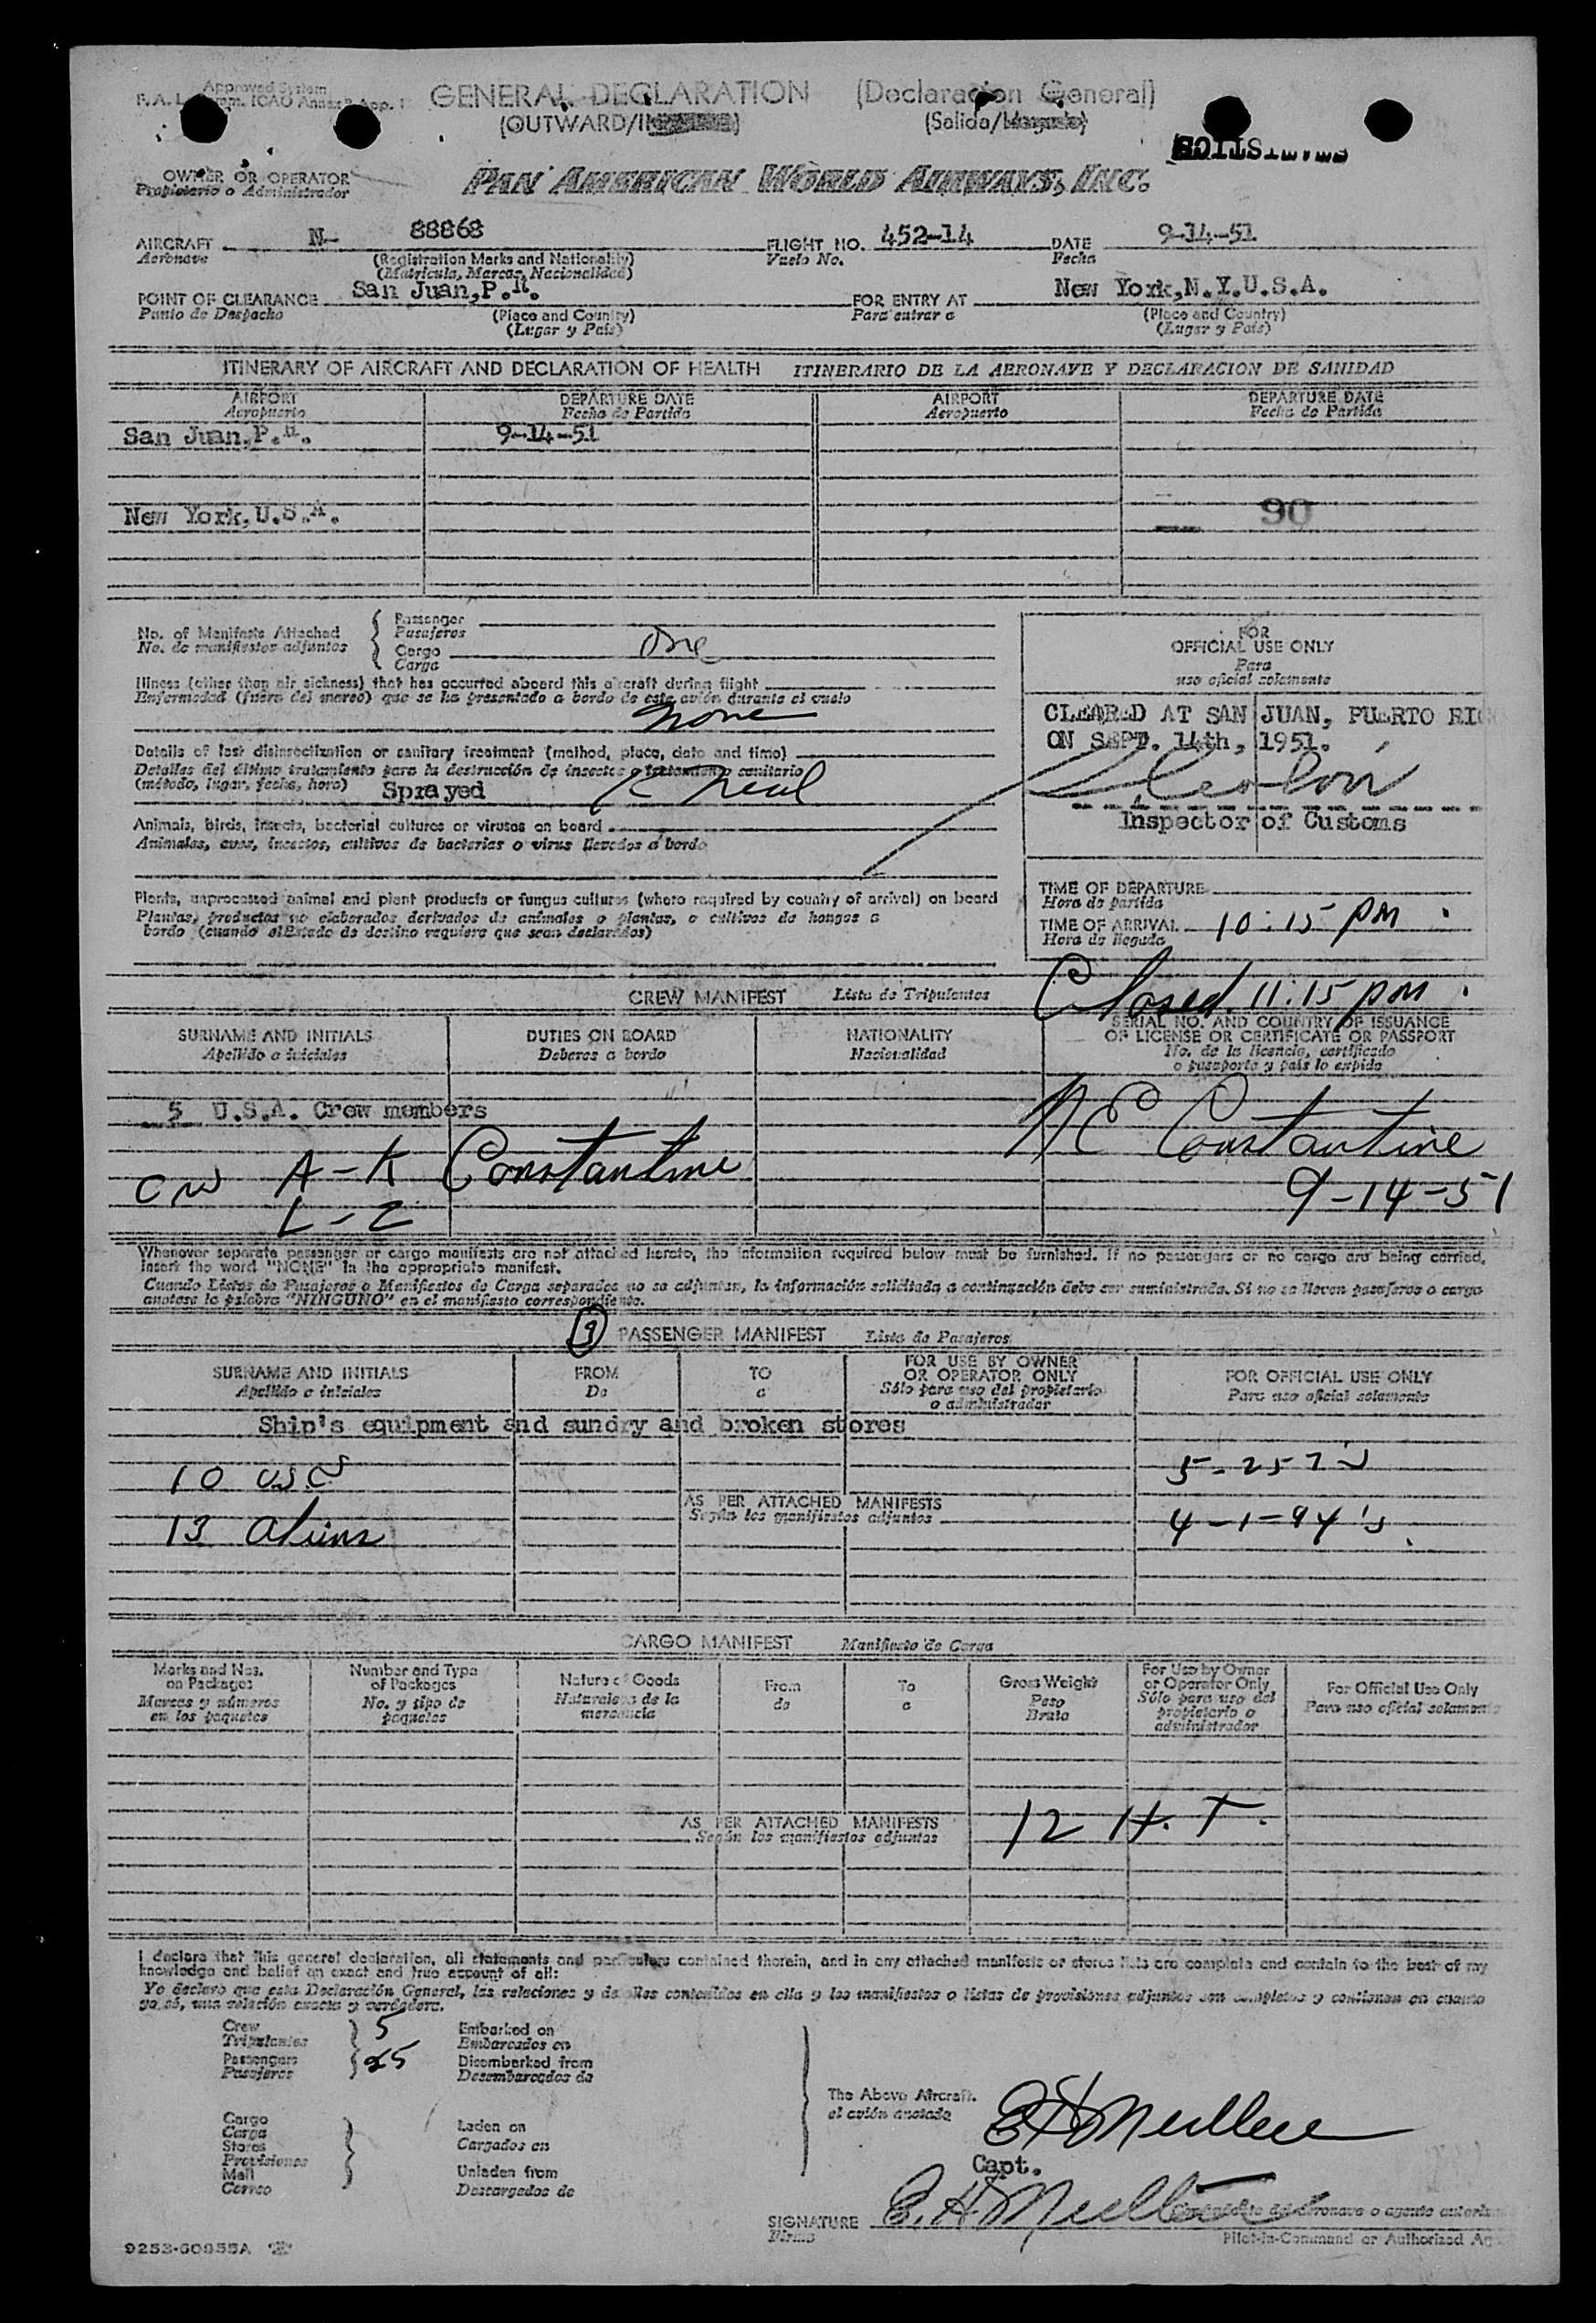 Approved System
F. A. L. ICAO Annex App. 1
GENERAL DECLARATION (Declaracion General)
(OUTWARD/ (Salida/
OWNER OR OPERATOR
Propietario o Administrador
PAN AMERICAN WORLD AIRWAYS, INC.
AIRCRAFT N- 88868 FLIGHT NO. 452-14 DATE 9-14-51
Aeronave (Registration Marks and Nationality) Vuelo No. Fecha
(Matricula, Marcas, Nacionalidad)
POINT OF CLEARANCE San Juan,P.R. FOR ENTRY AT New York,N.Y.U.S.A.
Punto de Despacho (Place and Country) Para entrar a (Place and Country)
(Lugar y País) (Lugar y País)
ITINERARY OF AIRCRAFT AND DECLARATION OF HEALTH ITINERARIO DE LA AERONAVE Y DECLARACION DE SANIDAD
AIRPORT DEPARTURE DATE AIRPORT DEPARTURE DATE
Aeropuerto Fecha de Partida Aeropuerto Fecha de Partida
San Juan,P.R. 9-14-51
New York,U.S.A. 90
No. of Manifests Attached
No. de manifiestos adjuntos
Passenger
Pasajeros
Cargo One
Carga
Illness (other than air sickness) that has occurred aboard this aircraft during flight
Enfermedad (fuera del mareo) que se ha presentado a bordo de este avión durante el vuelo
None
Details of last disinsectization or sanitary treatment (method, place, date and time)
Detalles del último tratamiento para la destrucción de insectos o tratamiento sanitario
(método, lugar, fecha, hora) Sprayed
Animals, birds, insects, bacterial cultures or viruses on board
Animales, aves, insectos, cultivos de bacterias o virus llevados a bordo
Plants, unprocessed animal and plant products or fungus cultures (where required by country of arrival) on board
Plantas, productos no elaborados derivados de animales o plantas, o cultivos de hongos a
bordo (cuando el Estado de destino requiera que sean declarados)
FOR
OFFICIAL USE ONLY
Para
uso oficial solamente
CLEARED AT SAN JUAN, PUERTO RIC
ON SEPT. 14th, 1951.
Inspector of Customs
TIME OF DEPARTURE
Hora de partida
TIME OF ARRIVAL 10:15 PM.
Hora de llegada
Closed 11:15 PM.
CREW MANIFEST Lista de Tripulantes
SURNAME AND INITIALS DUTIES ON BOARD NATIONALITY SERIAL NO. AND COUNTRY OF ISSUANCE
OF LICENSE OR CERTIFICATE OR PASSPORT
Apellido e iniciales Deberes a bordo Nacionalidad No. de la licencia, certificado
o pasaporte y país lo expide
5 U.S.A. Crew members
A-K Constantine Constantine
L-Z 9-14-51
Whenever separate passenger or cargo manifests are not attached hereto, the information required below must be furnished. If no passengers or no cargo are being carried,
insert the word "NONE" in the appropriate manifest.
Cuando Listas de Pasajeros o Manifiestos de Carga separados no se adjuntan, la información solicitada a continuación debe ser suministrada. Si no se llevan pasajeros o carga
anótese la palabra "NINGUNO" en el manifiesto correspondiente.
9 PASSENGER MANIFEST Lista de Pasajeros
SURNAME AND INITIALS FROM TO FOR USE BY OWNER
OR OPERATOR ONLY FOR OFFICIAL USE ONLY
Apellido e iniciales De a Sólo para uso del propietario
o administrador Para uso oficial solamente
Ship's equipment and sundry and broken stores
10 USC 5-257's
AS PER ATTACHED MANIFESTS
Según los manifiestos adjuntos
13 Aliens 4-1-94's.
CARGO MANIFEST Manifiesto de Carga
Marks and Nos.
on Packages
Marcas y números
en los paquetes
Number and Type
of Packages
No. y tipo de
paquetes
Nature of Goods
Naturaleza de la
mercancía
From
de
To
a
Gross Weight
Peso
Bruto
For Use by Owner
or Operator Only
Sólo para uso del
propietario o
administrador
For Official Use Only
Para uso oficial solamente
AS PER ATTACHED MANIFESTS 12 H. T.
Según los manifiestos adjuntos
I declare that this general declaration, all statements and particulars contained therein, and in any attached manifests or stores lists are complete and contain to the best of my
knowledge and belief an exact and true account of all:
Yo declaro que esta Declaración General, las relaciones y detalles contenidos en ella y los manifiestos o listas de provisiones adjuntos son completos y contienen en cuanto
yo sé, una relación exacta y verdadera.
Crew 5 Embarked on
Tripulantes Embarcados en
Passengers 25 Disembarked from
Pasajeros Desembarcados de
The Above Aircraft.
el avión anotado
Cargo
Carga Laden on
Stores Cargados en
Provisiones
Mail Unladen from
Correo Descargados de
Capt.
SIGNATURE
Firma
Pilot-in-Command or Authorized Ag
9253-60955A